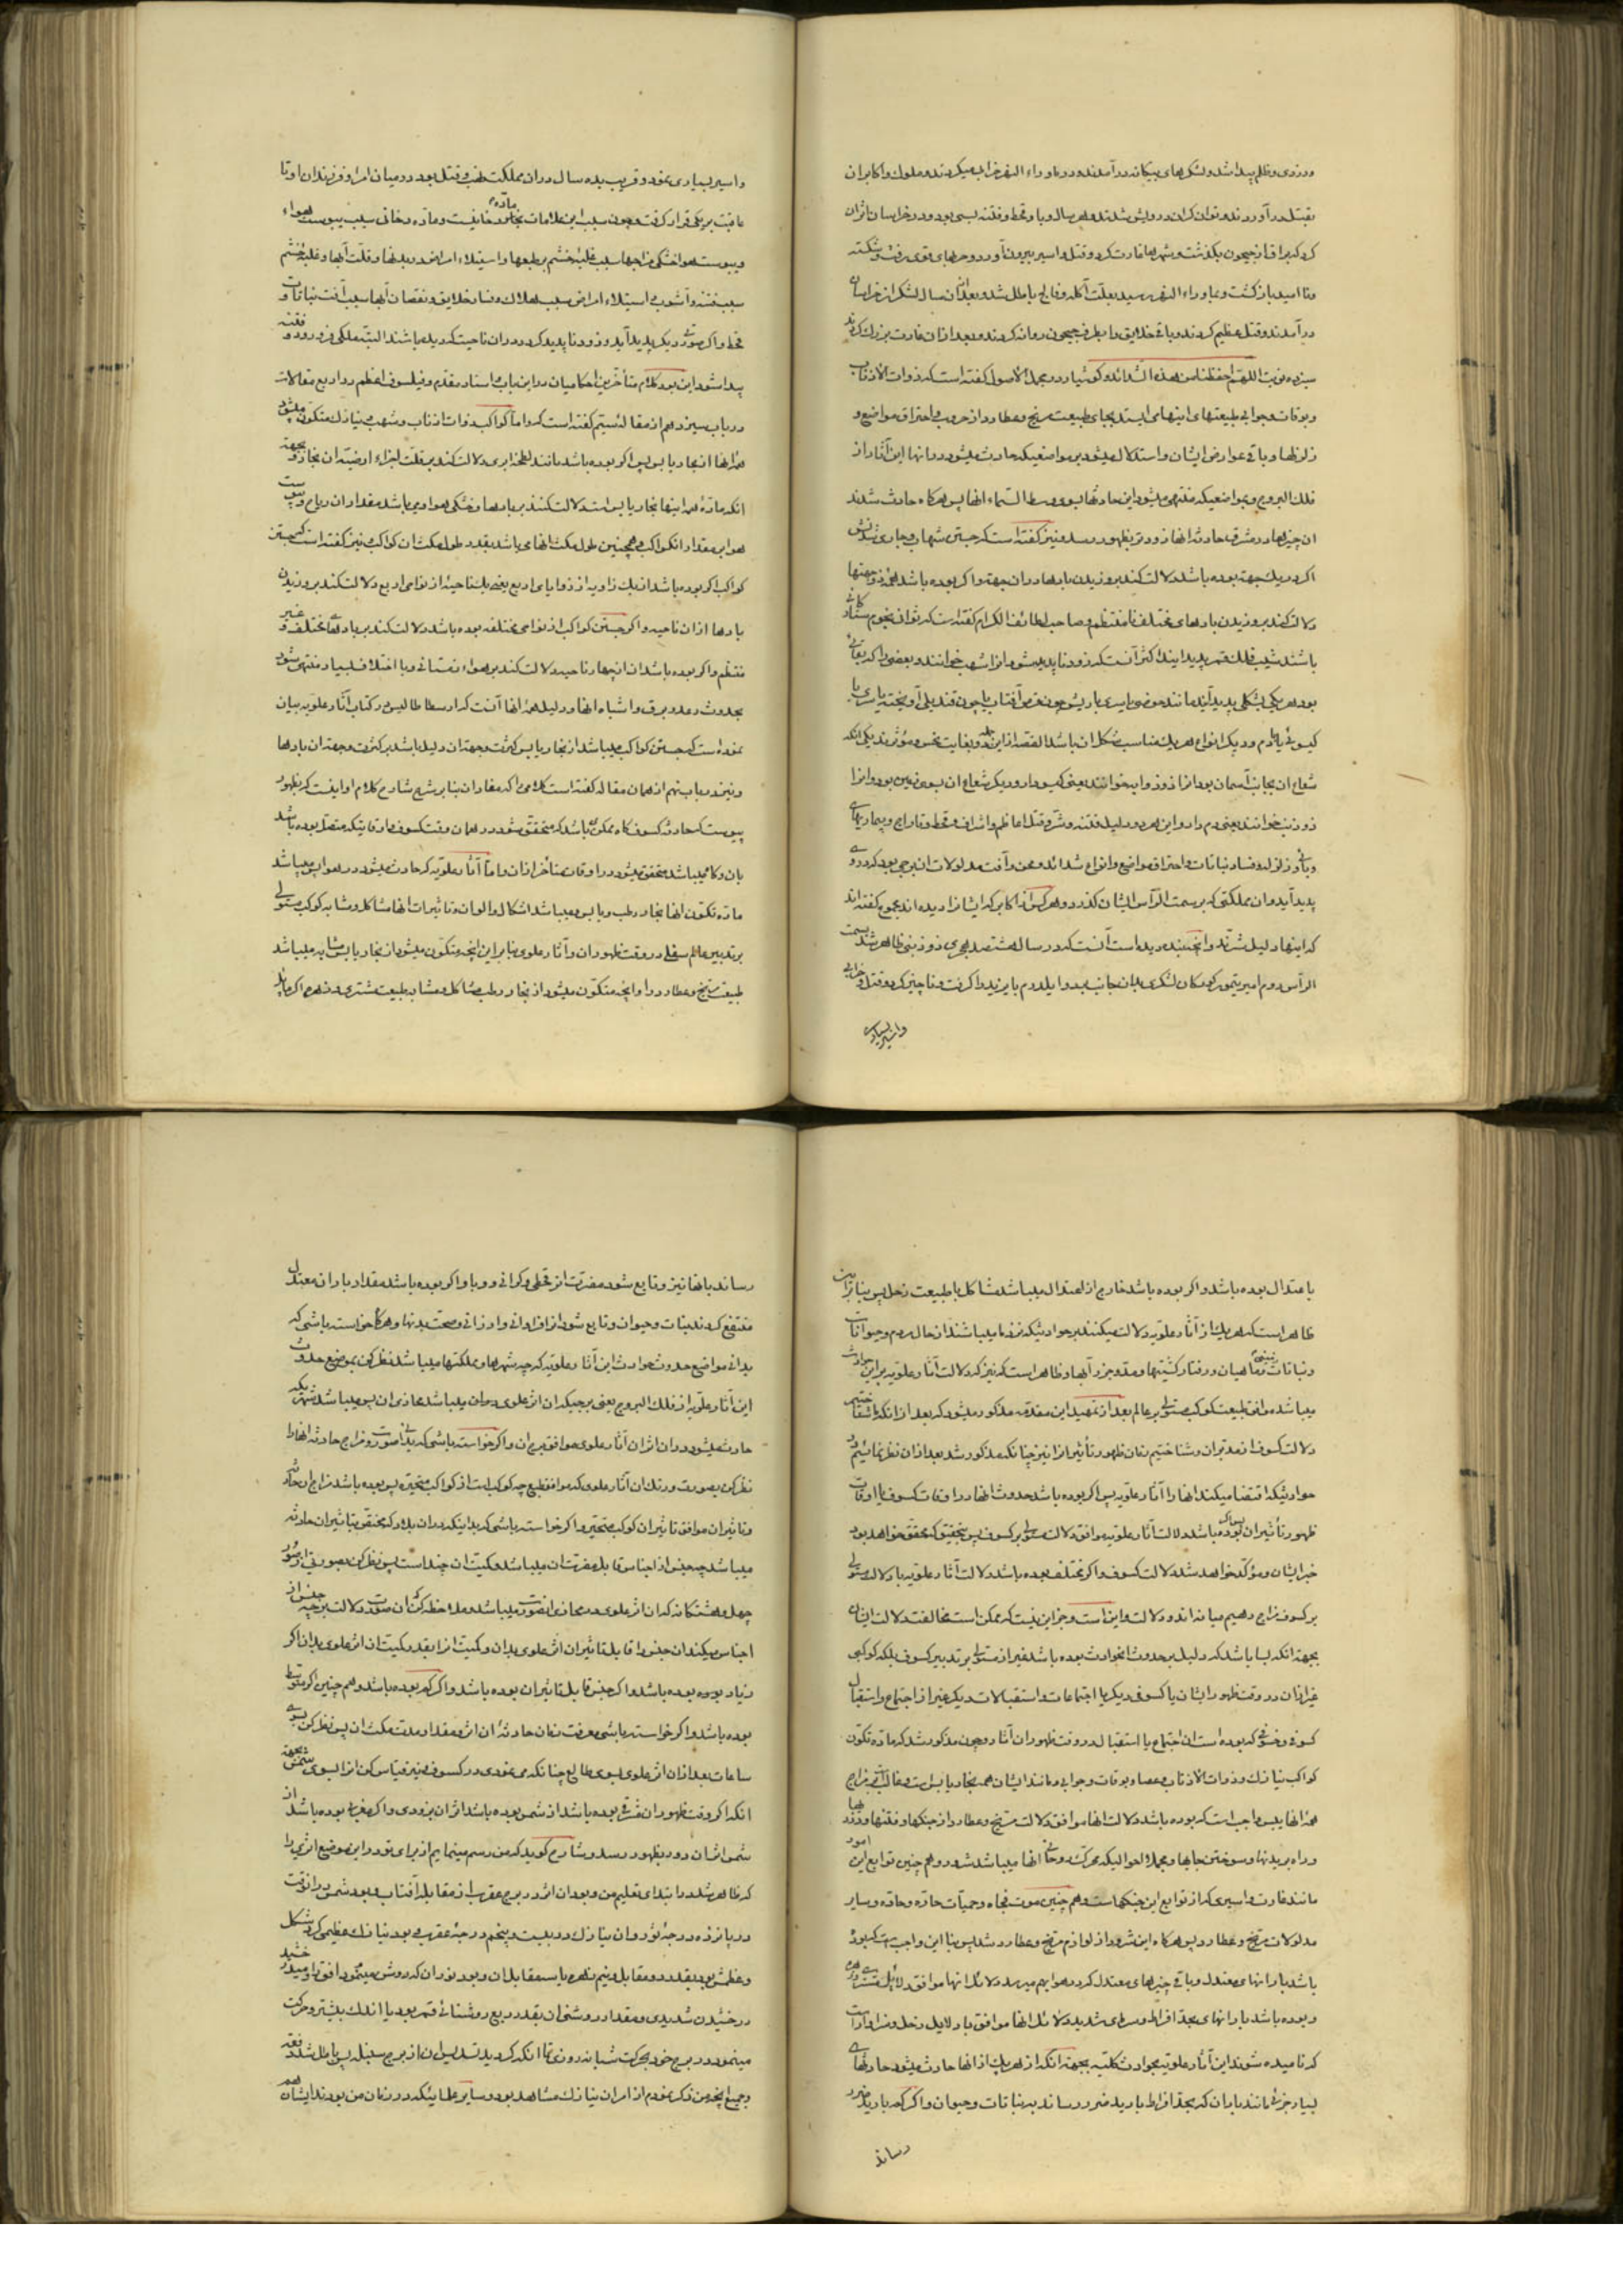 ودزدی و ظلم پیدا شد و لشکرهای بیکانه درآمدند و در ماوراء النهر خرابیها میکردند و ملوک و اکابر ان
بقتل درآوردند و توانکران درویش شدند و امسال و با و قحط و فتنه بسی بود و در خراسان تا ثران
کرد که براق از جیحون بکذشت و شهرها غارت کرد و قتل و اسیر بیرون آورد و حربهای قوی رفت و شکسته
و نا امید بازکشت و بماوراء النهر رسید بعلّت آکله و فالج باطل شد و بعد ازان سال لشکر از خراسان
درآمدند و قتل عظیم کردند و باقی خلایق را بطرف جیحون روانه کردند و بعد ازان غارت بزرک کردند
سیزده نوبت اللهمّ احفظنا من هذه الشدائد و کوشیار در مجمل الاصول کفته است که ذوات الاذناب
و بوقات و جوابی طبیعتهای اینهامی ایستد بجای طبیعت مریخ و عطارد از حروب و احتراق مواضع و
زلزلها و باقی عوارض ایشان و استدلال میشود بر مواضعیکه حادث میشود درانها این آثار از
فلک البروج و بمواضعیکه منتهی میشود این حادثها بسوی وسط السّماء انها پس هرکاه حادث شدند
ان چیزها در مشرق حادثه انها زودتر بظهور رسد و نیز کفته است که جستن شهاب و جاری شدنش
اکر در یک جهة بوده باشد دلالت کند بروزیدن بادها دران جهة و اکر بوده باشد
دلالت کند بروزیدن بادهای مختلف نامنتظم و صاحب لطائف الکلام کفته است که ثوانی نجوم
باشند شبیب فلک قمر پدید ایند اکثر آنست که زود ناپدید شود انرا شهب خوانند و بعضی
بود هر یکی بشکلی پدید آید مانند حوضی یا سری با ریش چون قرص آفتاب یا چون قندیلی آویخته یا سری با
کیسو یا با دم و دیکر انواع هر یک مناسب شکل ان باشد القصه ازین جمله دو بغایت نحس و مؤثرند یکی انکه
شعاع ان بجانب آسمان بود انرا ذوذوابه خوانند یعنی کیسودار و دیکر شعاع ان بسوی زمین بود و انرا
ذوذنب خوانند یعنی دم دار و این هردو دلیل فتنه و شرّ و قتل اعاظم و اشراف و قحط و تاراج و بیماریهای
وبائی و زلزله و فساد نباتات و احتراق مواضع و انواع شدائد و محن و آفت مدلولات ان برجی بود که دروی
پدید آید و ان مملکتی که بر سمت الرّأس ایشان کذرد و هرکس از اکابر که ایشانرا دیده اند مجموع کفته اند
که اینها دلیل شرّند و انچه بنده دیده است آنست که در سال هشتصد هجری ذوذنبی ظاهر شد بسمت
الرأس روم امیر تیمور کورکان لشکر بدان جانب برد و ایلدرم بایزید را کرفت و ناچیز کرد و قتل و خرابی
واسیر بسیاری
واسیر بسیاری نمود و قریب بده سال دران مملکت نهب و قتل بود در میان امرا و فرزندان او تا
عاقبت بر یکی قرار کرفت و چون سبب این علامات بخار و مادّه دخانیست و مادّه دخانی سبب یبوست هواء
و یبوست هوا خشکی مزاجها سبب غلبه خشم بر طبعها و استیلاء امراض در بدنها و قلّت آبها و غلبه خشم
سبب فتنه و آشوب و استیلاء امراض سبب هلاک و فساد خلایق و نقصان آبها سبب آفت نباتات و
قحط و اکر صورتی دیکر پدید آید و زود ناپدید کردد دران ناحیت که دیده باشند البتّه ملکی فرود رود و فتنه
پیدا شود این بود کلام متأخرین احکامیان درین باب و استاد مقدّم و فیلسوف اعظم در اربع مقالات
در باب سیزدهم از مقاله نیستم کفته است که و اما کواکب ذوات اذناب و شهب و نیازک متکوّن میشود
همه انها از بخار یابس پس اکر بوده باشد مانند لطخه ابری دلالت کند بر قلّت اجزاء ارضیّه ان بخار و بجهة
انکه مادّه همه اینها بخار یابس است دلالت کنند بر بادها و خشکی هوا و می باشد مقدار ان ریاح و یبوست
هوا بر مقدار انکواکب و همچنین طول مکث انها می باشد بقدر طول مکث ان کواکب نیز کفته است که جستن
کواکب اکر بوده باشد از یک زاویه از زوایای اربع یعنی یک ناحیه از نواحی اربع دلالت کند بروزیدن
بادها ازان ناحیه و اکر جستن کواکب از نواحی مختلفه بوده باشد دلالت کند بر بادهای مختلف و غیر
منتظم و اکر بوده باشد ان از چهار ناحیه دلالت کند بر هواء زمستانی و با اختلاف بسیار منتهی شود
بحدوث رعد و برق و اشباه انها و دلیل همه انها آنست که ارسطاطالیس در کتاب آثار علویه بیان
نموده است که جستن کواکب میباشد از بخار یابس کثرت و جهة ان دلیل باشد بر کثرت و جهة ان بادها
و نیز در باب نهم از همان مقاله کفته است کلامی را که مفاد ان بنا بر شرح شارح کلام او اینست که بظهور
پیوست که حادثه کسوف کاه ممکن باشد که متحقق شود در همان وقت کسوف و اوقاتیکه متصل بوده باشد
بان و کاه میباشد متحقق میشود در اوقات متأخر ازان و امّا آثار علویّه که حادث میشود در هوا پس میباشد
مادّه تکوّن انها بخار رطب و یابس و میباشد اشکال و الوان و تاثیرات انها مشاکل و مشابه کوکب مستولی
بر تدبیر عالم سفلی در وقت ظهور ان و آثار علوی بنا برین انچه متکوّن میشود از بخار یابس مشابه میباشد
طبیعت مریخ و عطارد را و انچه متکوّن میشود از بخار رطب مشاکل و مشابه طبیعت مشتری و زهره اکر مایل
باعتدال بوده باشد و اکر بوده باشد خارج از اعتدال میباشد مشاکل با طبیعت زحل پس بنا برین
ظاهر است که هر یک از آثار علویّه دلالت میکنند بر حوادثیکه نزد ما میباشند از حال مردم و حیوانات
و نباتات و ماهیان و رفتار کشتیها و مدّ و جزر آبها و ظاهر است که نیز که دلالت آثار علویّه برین حوادث
میباشد موافق طبیعت کوکب مستولی بر عالم بعد از تمهید این مقدّمه مذکور میشود که بعد از انکه شناختیم
دلالت کسوف از مدتهران و شناختیم زمان ظهور تأثیر انرا نیز چنانکه مذکور شد بعد ازان نظر نمائیم در
حوادثیکه اقتضا میکند انها را آثار علویه پس اکر بوده باشد حدوث انها در اوقات کسوف یا اوقات
ظهور تأثیر ان بوده باشد دلالت آثار علویه موافق دلالت مستولی بر کسوف پس بتحقیق که محقق خواهد بود
خبر ایشان و مؤکد خواهد شد دلالت کسوف و اکر مختلف بوده باشد دلالت آثار علویّه با دلالت مستولی
بر کسوف مزاج دهیم میانه اندو دلالت و این است و جز این نیست که ممکن است مخالفت دلالت ایشان
بجهة انکه بسا باشد که دلیل بر حدوث انحوادث بوده باشد غیر از مستولی بر تدبیر کسوف بلکه کوکبی
غیر ازان در وقت ظهور ایشان یا کسوف دیکر یا اجتماعات و استقبالات دیکر غیر از اجتماع و استقبال
کسوفی و خسوفی که بوده است ان اجتماع یا استقبال در وقت ظهور ان آثار و چون مذکور شد که مادّه تکوّن
کواکب نیازک و ذوات الاذناب و عصا و بوقات و جوابی و مانند ایشان همه بخار یابس است و غالب بر مزاج
همه انها یبس واجب است که بوده باشد دلالت انها موافق دلالت مریخ و عطارد از جنکها و فتنها و دزدیها
و راه بریدنها و سوختن جایها و مجملا احوالیکه محرک و حانی انها میباشد شود و هم چنین توابع این امور
مانند غارت و اسیری که از توابع این جنکها است و هم چنین موت فجاه و حمیّات حادّه و حاقه و سایر
مدلولات مریخ و عطارد پس هرکاه این شرور از لوازم مریخ و عطارد شد پس بنا این واجب است که بوده
باشد بارانهای معتدل و باقی چیزهای معتدل که در هوا بهم میرسد دلائل انها موافق دلائل مشتری و زهره
و بوده باشد بارانهای بحد افراط و سرمای شدید دلائل انها موافق با دلایل زحل و سزاوار است
که نامیده شوند این آثار علویّه بحوادث کلیّه بجهة انکه از هر یک از انها حادث میشود حادثهای
بسیار جزئی مانند باران که بحدّ افراط بارید ضرر رساند به نباتات و حیوان و اکر کم بارید ضرر
رساند
رساند بانها نیز و تابع شود مضرّت انرا قحطی و کرانی و وبا و اکر بوده باشد مقدار باران معتدل
منتفع کردند نبات و حیوان و تابع شود انرا فراوانی و ارزانی و صحّت بدنها و هرکاه خواسته باشی که
بدانی مواضع حدوث حوادث این آثار علویّه که چه شهرها و مملکتها میباشد نظر کن بموضع حدوث
این آثار علویّه از فلک البروج یعنی برجیکه ان اثر علوی دران میباشد محاذی ان پس میباشد شهریکه
حادث میشود دران اثر ان آثار علوی موافق برج ان و اکر خواسته باشی که بدانی صورت و مزاج حادثه انها را
نظر کن بصورت و رنک ان آثار علوی که موافق طبع چه کوکب است از کواکب متحیّره پس بوده باشد مزاج ان حادثه
و تاثیر ان موافق تاثیر ان کوکب متحیّر و اکر خواسته باشی که بدانی که دران بلاد که مختص بتاثیر ان حادثه
میباشد چه جنس از اجناس قابل مضرّت ان میباشد و کمیّت ان چند است پس نظر کن بصورتی از صور
چهل و هشتکانه که ان اثر علوی در محاذی انصورت میباشد و ملاحظه کن که ان صورت دلالت بر چه جنس از
اجناس میکند ان جنس را قابل تاثیر ان اثر علوی بدان و کمیّت انرا بقدر کمیّت ان اثر علوی بدان اکر
زیاد بوده بوده باشد و اکر جنس قابل تاثیر ان بوده باشد و اکر کم بوده باشد و هم چنین اکر متوسّط
بوده باشد و اکر خواسته باشی معرفت زمان حادثه ان اثر و مقدار مدّت مکث ان پس نظر کن بسوی
ساعات بعد ازان اثر علوی بسوی طالع چنانکه می نمودی در کسوف و نیز قیاس کن انرا بسوی شمس بجهة
انکه اکر وقت ظهور ان شرقی بوده باشد از شمس بوده باشد اثر ان بزودی و اکر غربی بوده باشد از
شمس اثر ان دور بظهور رسد و شارح کوید که من رسم مینمایم از برای تو درین موضع اثری را
که ظاهر شد در ابتدای تعلیم من و بود ان اثر در برج عقرب از مقابله آفتاب و بود شمس در انوقت
در پانزده درجه ثور و ان نیازک در بیست و پنجم درجه عقرب و بود نیازک عظیمی کروی شکل
و عظمش بود بقدر دو مقابل و نیم زهره یا سه مقابل ان و بود نور ان که روشن مینمود افق را و میدرخشید
درخشیدن شدیدی و مقدار روشنی ان بقدر ربع روشنائی قمر بود یا اندک بیشتر و حرکت
مینمود در برج خود بحرکت شبانه روزی تا انکه کردید تسدیس ان از برج سنبله پس باطل شد دفعه
و جمیع انچه من ذکر نمودم از امر ان نیازک مشاهد بود و سایر علمائیکه در زمان من بودند ایشان هم